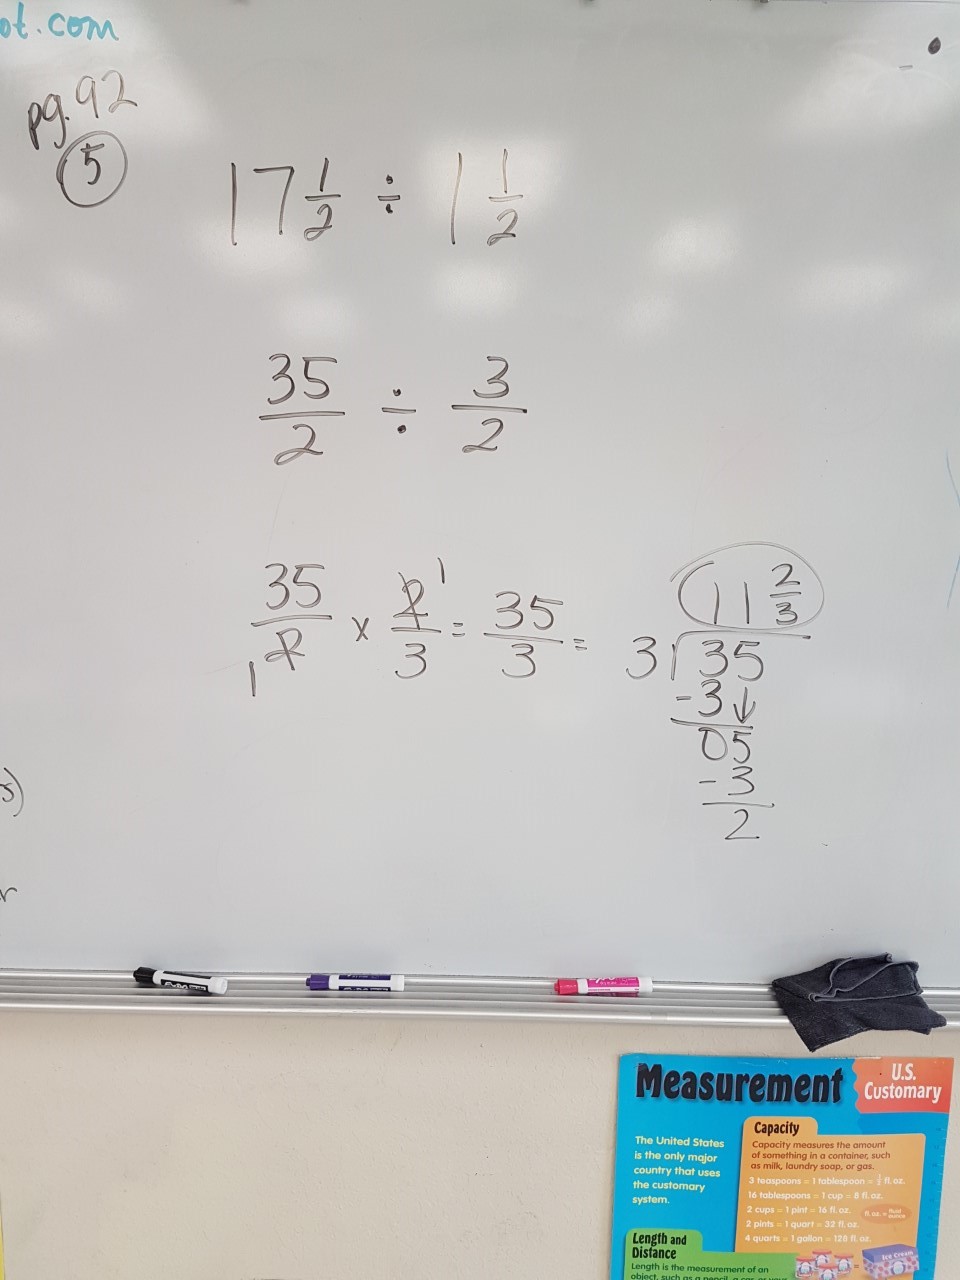 ot.com
pg. 92
5
17 1/2 ÷ 1 1/2
35/2 ÷ 3/2
35/2 x 2/3 = 35/3 =
1
1
11 2/3
3 35
-3↓
05
-3
2
s)
r
EXPO
Measurement
U.S.
Customary
The United States
is the only major
country that uses
the customary
system.
Capacity
Capacity measures the amount
of something in a container, such
as milk, laundry soap, or gas.
3 teaspoons = 1 tablespoon = 1/2 fl. oz.
16 tablespoons = 1 cup = 8 fl. oz.
2 cups = 1 pint = 16 fl. oz.
fl. oz. = fluid
ounce
2 pints = 1 quart = 32 fl. oz.
4 quarts = 1 gallon = 128 fl. oz.
Ice Cream
Length and
Distance
Length is the measurement of an
object, such as a pencil, a car, or your